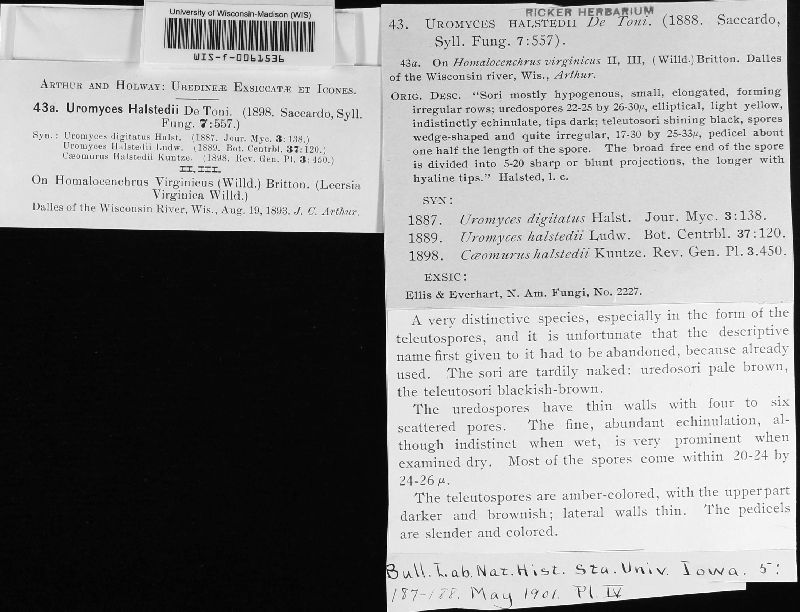 University of Wisconsin-Madison (WIS)
WIS-f-0061536
ARTHUR AND HOLWAY: UREDINEÆ EXSICCATÆ ET ICONES.
43a. Uromyces Halstedii De Toni. (1898. Saccardo, Syll.
Fung. 7:557.)
Syn.: Uromyces digitatus Halst. (1887. Jour. Myc. 3:138.)
Uromyces Halstedii Ludw. (1889. Bot. Centrbl. 37:120.)
Cæomurus Halstedii Kuntze. (1898. Rev. Gen. Pl. 3:450.)
II, III.
On Homalocenchrus Virginicus (Willd.) Britton. (Leersia
Virginica Willd.)
Dalles of the Wisconsin River, Wis., Aug. 19, 1893. J. C. Arthur.
RICKER HERBARIUM
43. UROMYCES HALSTEDII De Toni. (1888. Saccardo,
Syll. Fung. 7:557).
43a. On Homalocenchrus virginicus II, III, (Willd.) Britton. Dalles
of the Wisconsin river, Wis., Arthur.
ORIG. DESC. "Sori mostly hypogenous, small, elongated, forming
irregular rows; uredospores 22-25 by 26-30μ, elliptical, light yellow,
indistinctly echinulate, tips dark; teleutosori shining black, spores
wedge-shaped and quite irregular, 17-30 by 25-33μ, pedicel about
one half the length of the spore. The broad free end of the spore
is divided into 5-20 sharp or blunt projections, the longer with
hyaline tips." Halsted, l. c.
SYN:
1887. Uromyces digitatus Halst. Jour. Myc. 3:138.
1889. Uromyces halstedii Ludw. Bot. Centrbl. 37:120.
1898. Cæomurus halstedii Kuntze. Rev. Gen. Pl. 3.450.
EXSIC:
Ellis & Everhart, N. Am. Fungi, No. 2227.
A very distinctive species, especially in the form of the
teleutospores, and it is unfortunate that the descriptive
name first given to it had to be abandoned, because already
used. The sori are tardily naked: uredosori pale brown,
the teleutosori blackish-brown.
The uredospores have thin walls with four to six
scattered pores. The fine, abundant echinulation, al-
though indistinct when wet, is very prominent when
examined dry. Most of the spores come within 20-24 by
24-26μ.
The teleutospores are amber-colored, with the upper part
darker and brownish; lateral walls thin. The pedicels
are slender and colored.
Bull. Lab. Nat. Hist. Sta. Univ. Iowa. 5:
187-188. May 1901. Pl IV